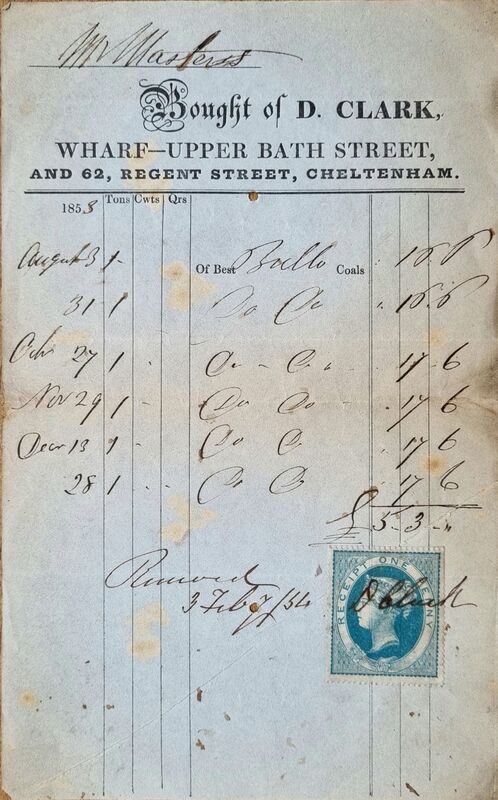 Mr Masters
Bought of D. CLARK,
WHARF—UPPER BATH STREET,
AND 62, REGENT STREET, CHELTENHAM.
1853 Tons Cwts Qrs
August 3 1 - Of Best Coals 16 6
31 1 Do Do 16 6
Octr 27 1 Do - Do 17 6
Nov 29 1 - Do Do 17 6
Decr 13 1 - Do Do 17 6
28 1 - - Do Do 17 6
£ 5 - 3 - "
RECEIPT ONE PENNY
D Clark
Received
3 Feby /54